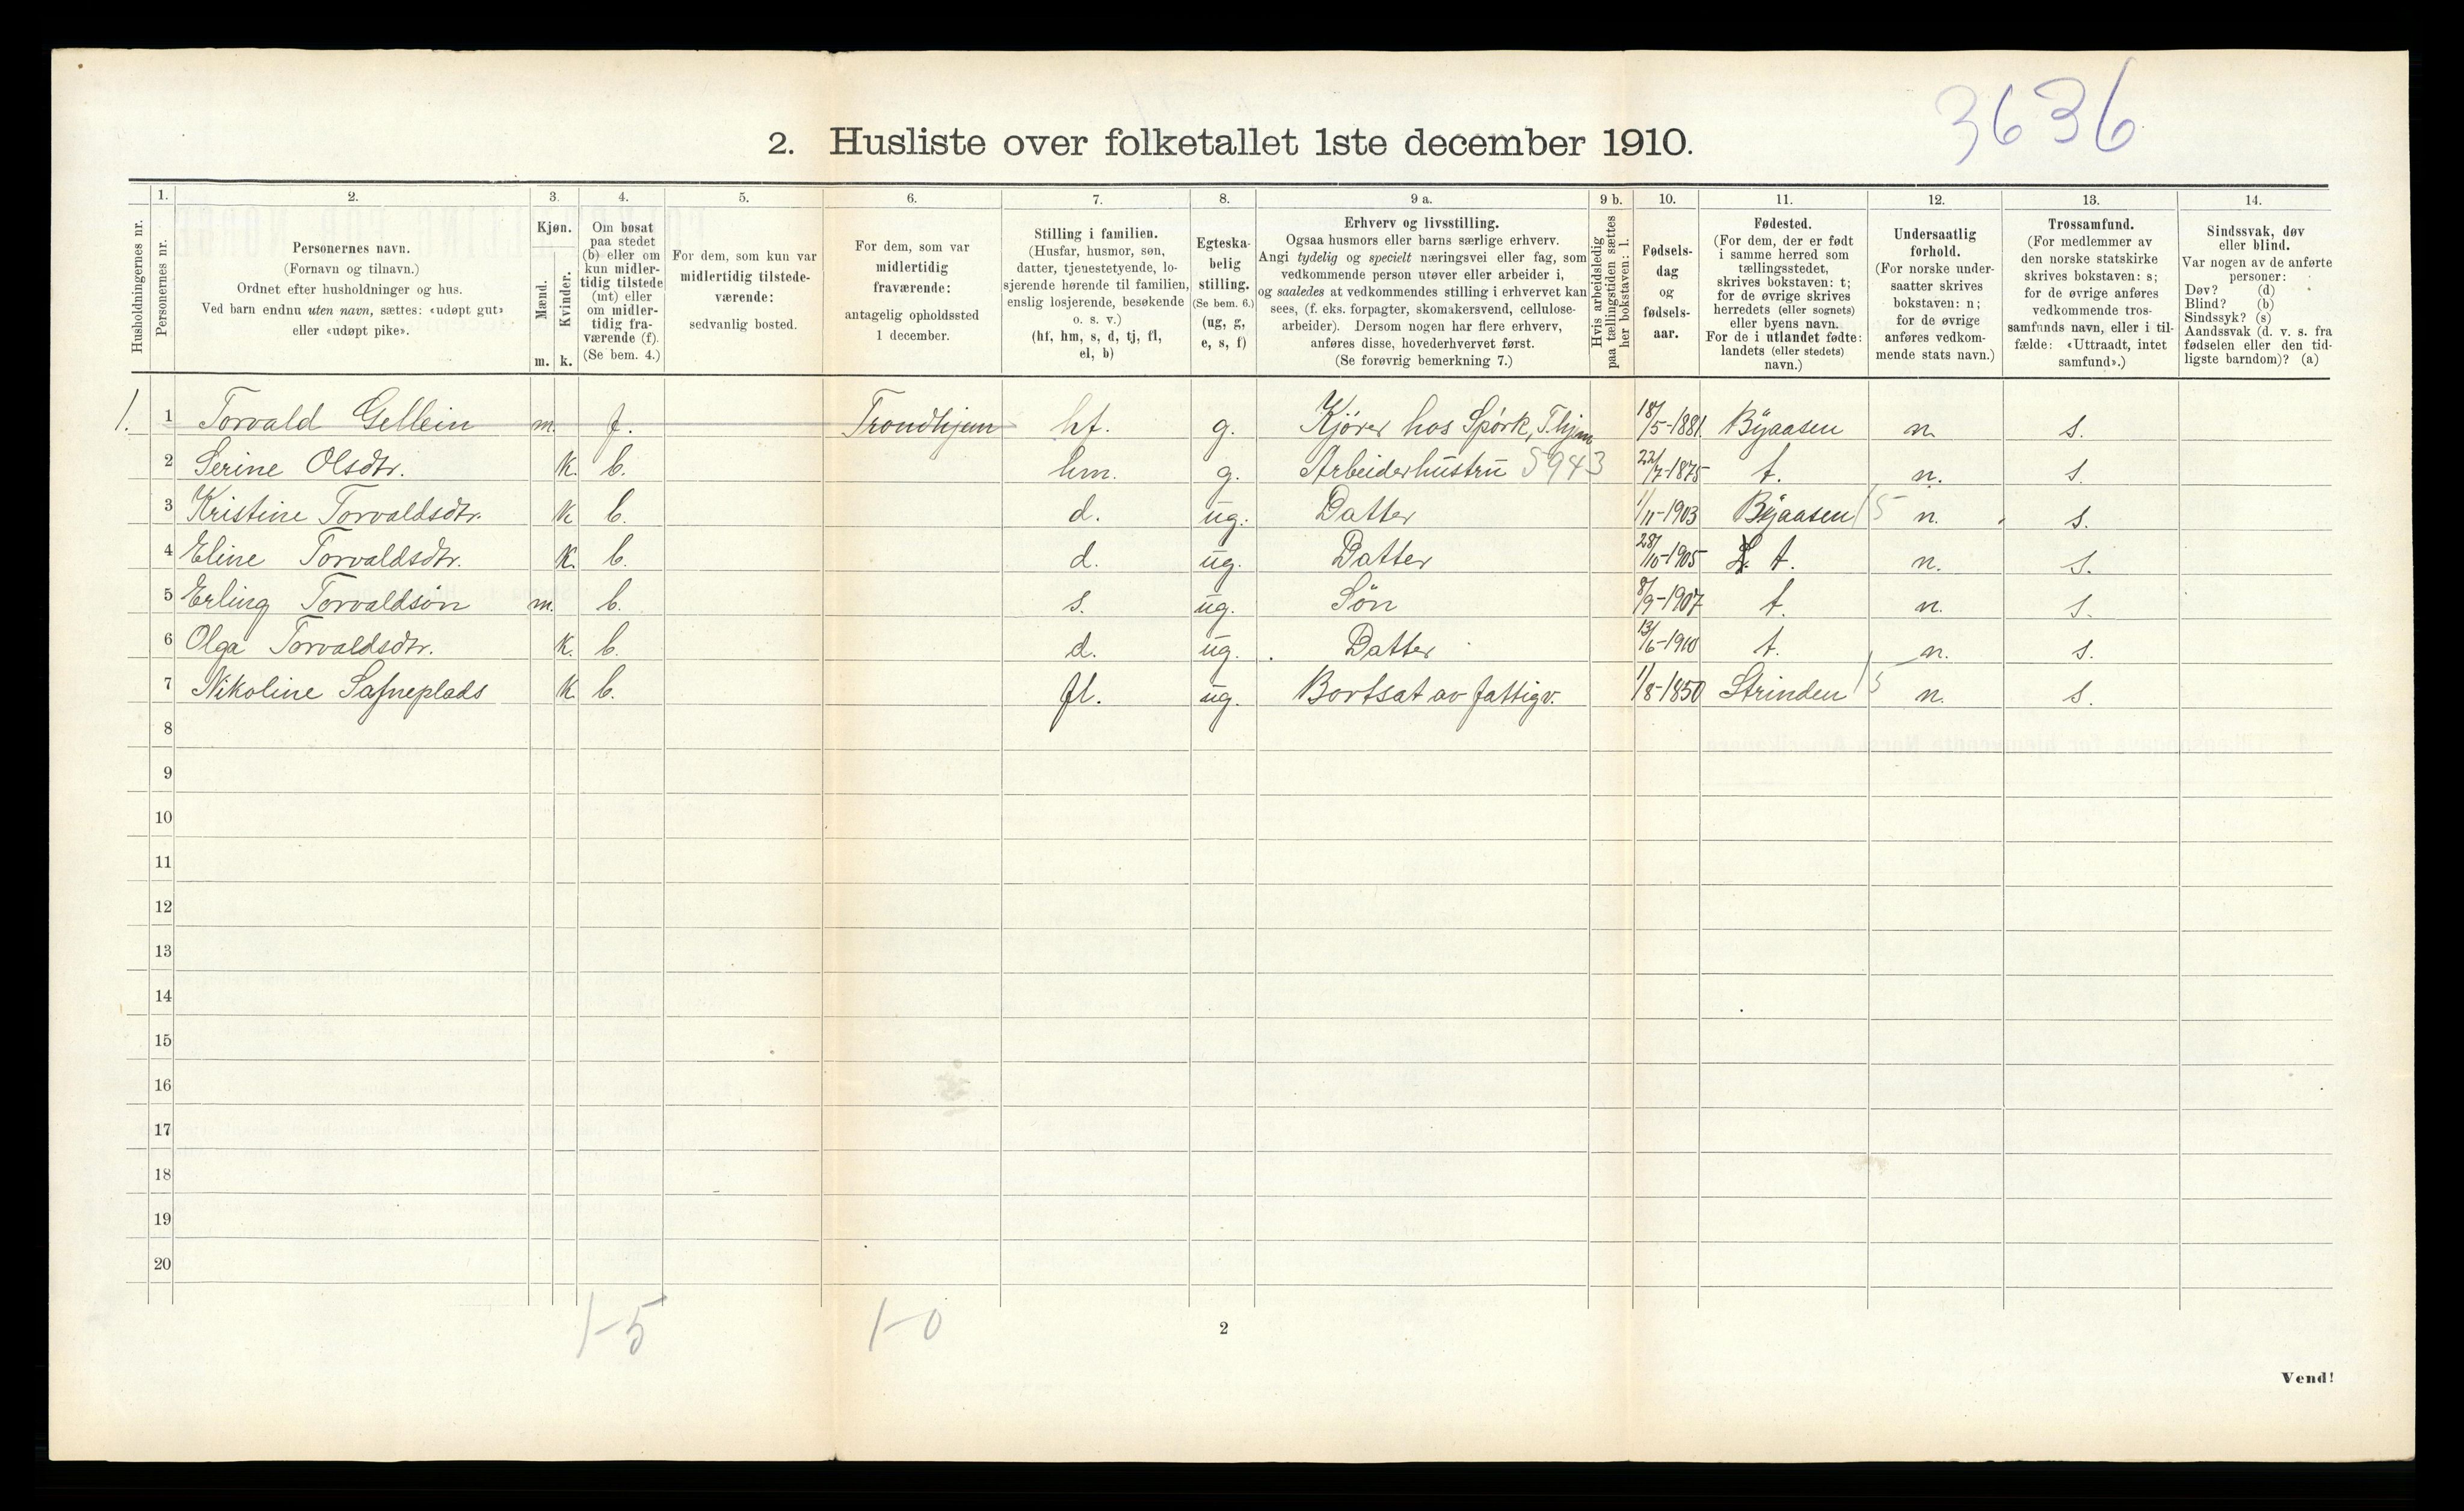 3636
2. Husliste over folketallet 1ste december 1910.
1. 2. 3. 4. 5. 6. 7. 8. 9 a. 9 b. 10. 11. 12. 13. 14.
Husholdningernes nr.
Personernes nr.
Personernes navn.
(Fornavn og tilnavn.)
Ordnet efter husholdninger og hus.
Ved barn endnu uten navn, sættes: «udøpt gut»
eller «udøpt pike».
Kjøn.
Mænd.
Kvinder.
m. k.
Om bosat
paa stedet
(b) eller om
kun midler-
tidig tilstede
(mt) eller
om midler-
tidig fra-
værende (f).
(Se bem. 4.)
For dem, som kun var
midlertidig tilstede-
værende:
sedvanlig bosted.
For dem, som var
midlertidig
fraværende:
antagelig opholdssted
1 december.
Stilling i familien.
(Husfar, husmor, søn,
datter, tjenestetyende, lo-
sjerende hørende til familien,
enslig losjerende, besøkende
o. s. v.)
(hf, hm, s, d, tj, fl,
el, b)
Egteska-
belig
stilling.
(Se bem. 6.)
(ug, g,
e, s, f)
Erhverv og livsstilling.
Ogsaa husmors eller barns særlige erhverv.
Angi tydelig og specielt næringsvei eller fag, som
vedkommende person utøver eller arbeider i,
og saaledes at vedkommendes stilling i erhvervet kan
sees, (f. eks. forpagter, skomakersvend, cellulose-
arbeider). Dersom nogen har flere erhverv,
anføres disse, hovederhvervet først.
(Se forøvrig bemerkning 7.)
Hvis arbeidsledig
paa tællingstiden sættes
her bokstaven: l.
Fødsels-
dag
og
fødsels-
aar.
Fødested.
(For dem, der er født
i samme herred som
tællingsstedet,
skrives bokstaven: t;
for de øvrige skrives
herredets (eller sognets)
eller byens navn.
For de i utlandet fødte:
landets (eller stedets)
navn.)
Undersaatlig
forhold.
(For norske under-
saatter skrives
bokstaven: n;
for de øvrige
anføres vedkom-
mende stats navn.)
Trossamfund.
(For medlemmer av
den norske statskirke
skrives bokstaven: s;
for de øvrige anføres
vedkommende tros-
samfunds navn, eller i til-
fælde: «Uttraadt, intet
samfund».)
Sindssvak, døv
eller blind.
Var nogen av de anførte
personer:
Døv? (d)
Blind? (b)
Sindssyk? (s)
Aandssvak (d. v. s. fra
fødselen eller den tid-
ligste barndom)? (a)
1. 1 Torvald Gellein m. f. Trondhjem hf. g. Kjører hos Spørk, Thjem 18/5-1881 Byaasen n. s.
2 Serine Olsdtr. K. b. hm. g. Arbeiderhustru 5943 22/7-1875 t. n. s.
3 Kristine Torvaldsdtr. K b. d. ug. Datter 1/11-1903 Byaasen 15 n. s.
4 Eline Torvaldsdtr. K. b. d. ug. Datter 28/10-1905 t. n. s.
5 Erling Torvaldsøn m. b. s. ug. Søn 8/9-1907 t. n. s.
6 Olga Torvaldsdtr. K. b. d. ug. Datter 13/6-1910 t. n. s.
7 Nikoline Safneplads K b. fl. ug. Bortsat av fattigv. 1/8-1850 Strinden 15 n. s.
8
9
10
11
12
13
14
15
16
17
18
19
20
1-5 1-0
2
Vend!